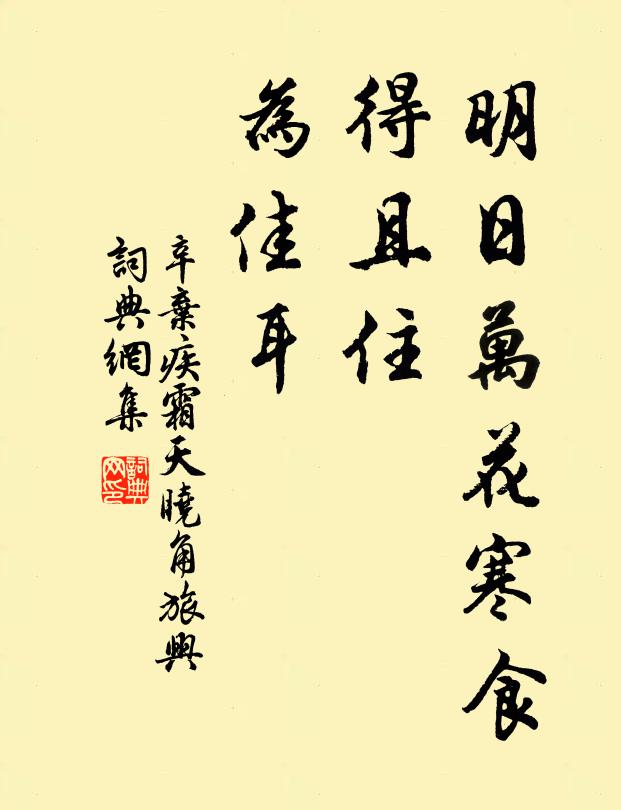 明日萬花寒食
得且住
為佳耳
辛棄疾霜天曉角旅興
詞典網集
詞典
网印